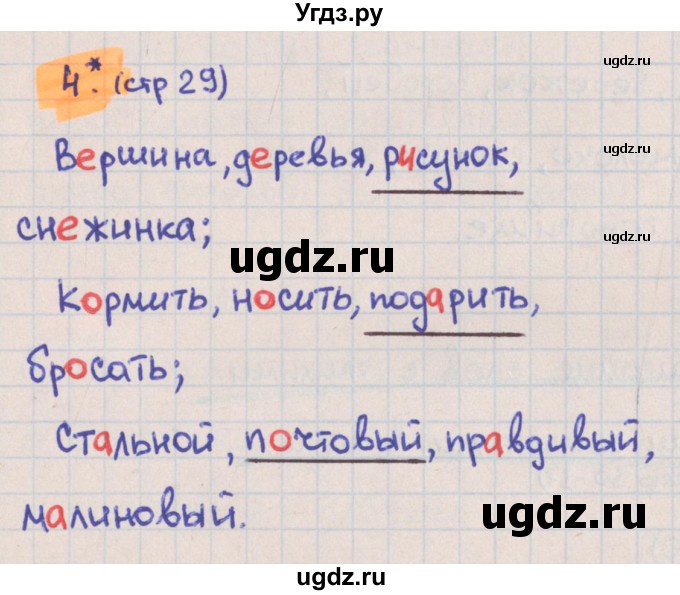 Угдз.ру
ugdz.ru
4*. (стр 29)
Вершина, деревья, рисунок,
ugdz.ru
снежинка;
ugdz.ru
ugdz.ru
Кормить, носить, подарить,
бросать;
Стальной, почтовый, правдивый,
малиновый.
ugdz.ru
ugdz.ru
ugdz.ru